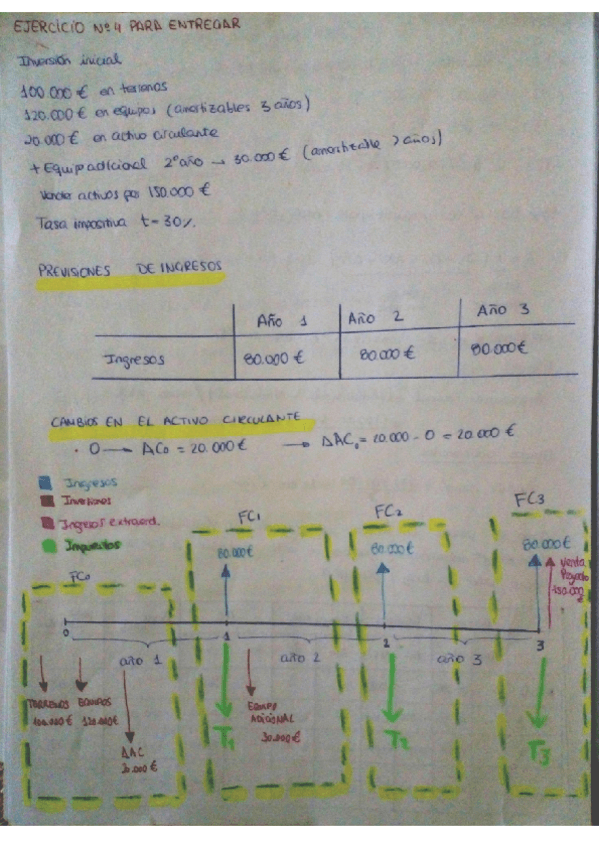 EJERCICIO Nº4 PARA ENTREGAR
Inversión inicial
100.000 € en terrenos
120.000 € en equipos (amortizables 3 años)
20.000 € en activo circulante
+ Equip adicional 2º año → 30.000 € (amortizable 2 años)
Vender activos por 150.000 €
Tasa impositiva t = 30%.
PREVISIONES DE INGRESOS
Año 1 Año 2 Año 3
Ingresos 80.000 € 80.000 € 80.000 €
CAMBIOS EN EL ACTIVO CIRCULANTE
· 0 → AC0 = 20.000 € → ΔAC0 = 20.000 - 0 = 20.000 €
Ingresos
Inversiones
Ingresos extraord.
Impuestos
FC0 FC1 FC2 FC3
80.000 € 80.000 € 80.000 €
Venta
Proyecto
150.000 €
0 1 2 3
año 1 año 2 año 3
TERRENOS EQUIPOS
100.000 € 120.000 €
ΔAC
20.000 €
EQUIPO
ADICIONAL
30.000 €
T1 T2 T3